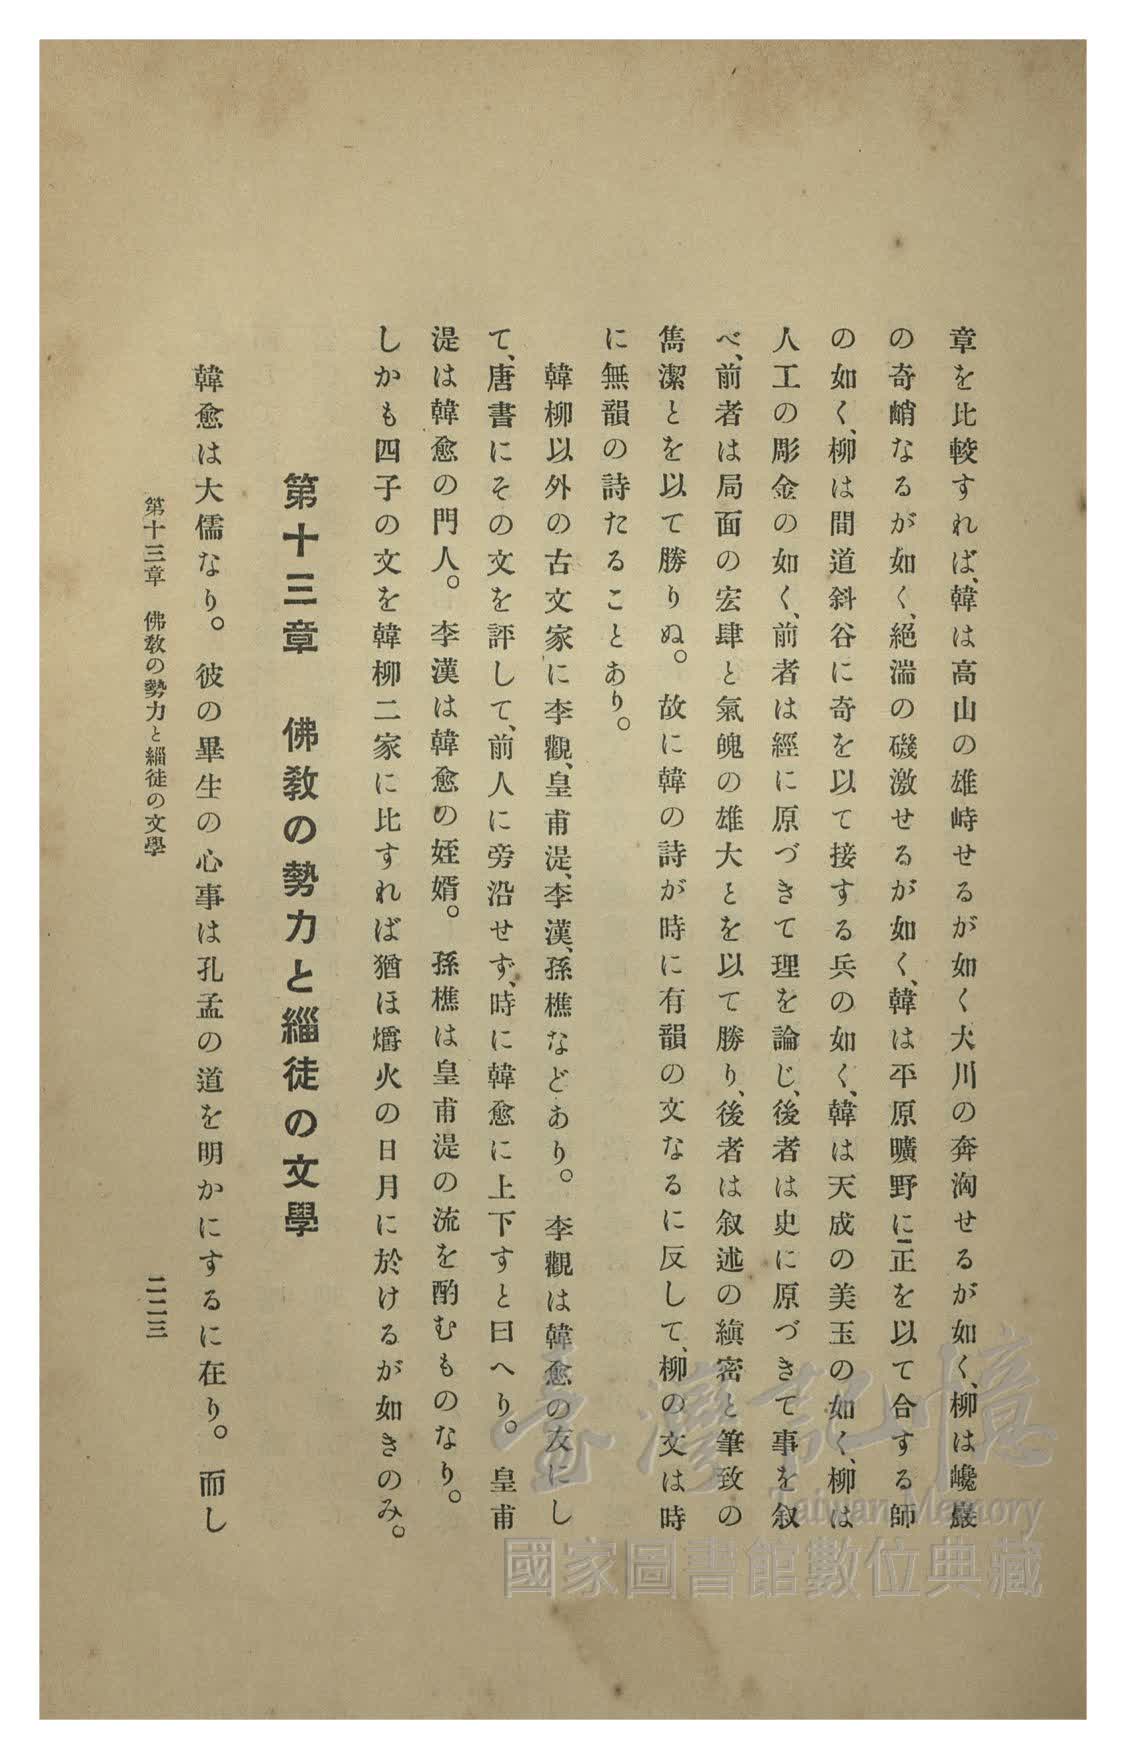 章を比較すれば、韓は高山の雄峙せるが如く大川の奔洶せるが如く、柳は巉巖
の奇峭なるが如く、絕湍の磯激せるが如く、韓は平原曠野に正を以て合する師
の如く、柳は間道斜谷に奇を以て接する兵の如く、韓は天成の美玉の如く、柳は
人工の彫金の如く、前者は經に原づきて理を論じ、後者は史に原づきて事を叙
べ、前者は局面の宏肆と氣魄の雄大とを以て勝り、後者は叙述の縝密と筆致の
雋潔とを以て勝りぬ。故に韓の詩が時に有韻の文なるに反して、柳の文は時
に無韻の詩たることあり。
韓柳以外の古文家に李觀、皇甫湜、李漢、孫樵などあり。李觀は韓愈の友にし
て、唐書にその文を評して、前人に旁沿せず、時に韓愈に上下すと曰へり。皇甫
湜は韓愈の門人。李漢は韓愈の姪婿。孫樵は皇甫湜の流を酌むものなり。
しかも四子の文を韓柳二家に比すれば猶ほ爝火の日月に於けるが如きのみ。
第十三章 佛敎の勢力と緇徒の文學
韓愈は大儒なり。彼の畢生の心事は孔孟の道を明かにするに在り。而し
第十三章 佛敎の勢力と緇徒の文學
二二三
臺灣記憶
Taiwan Memory
國家圖書館數位典藏